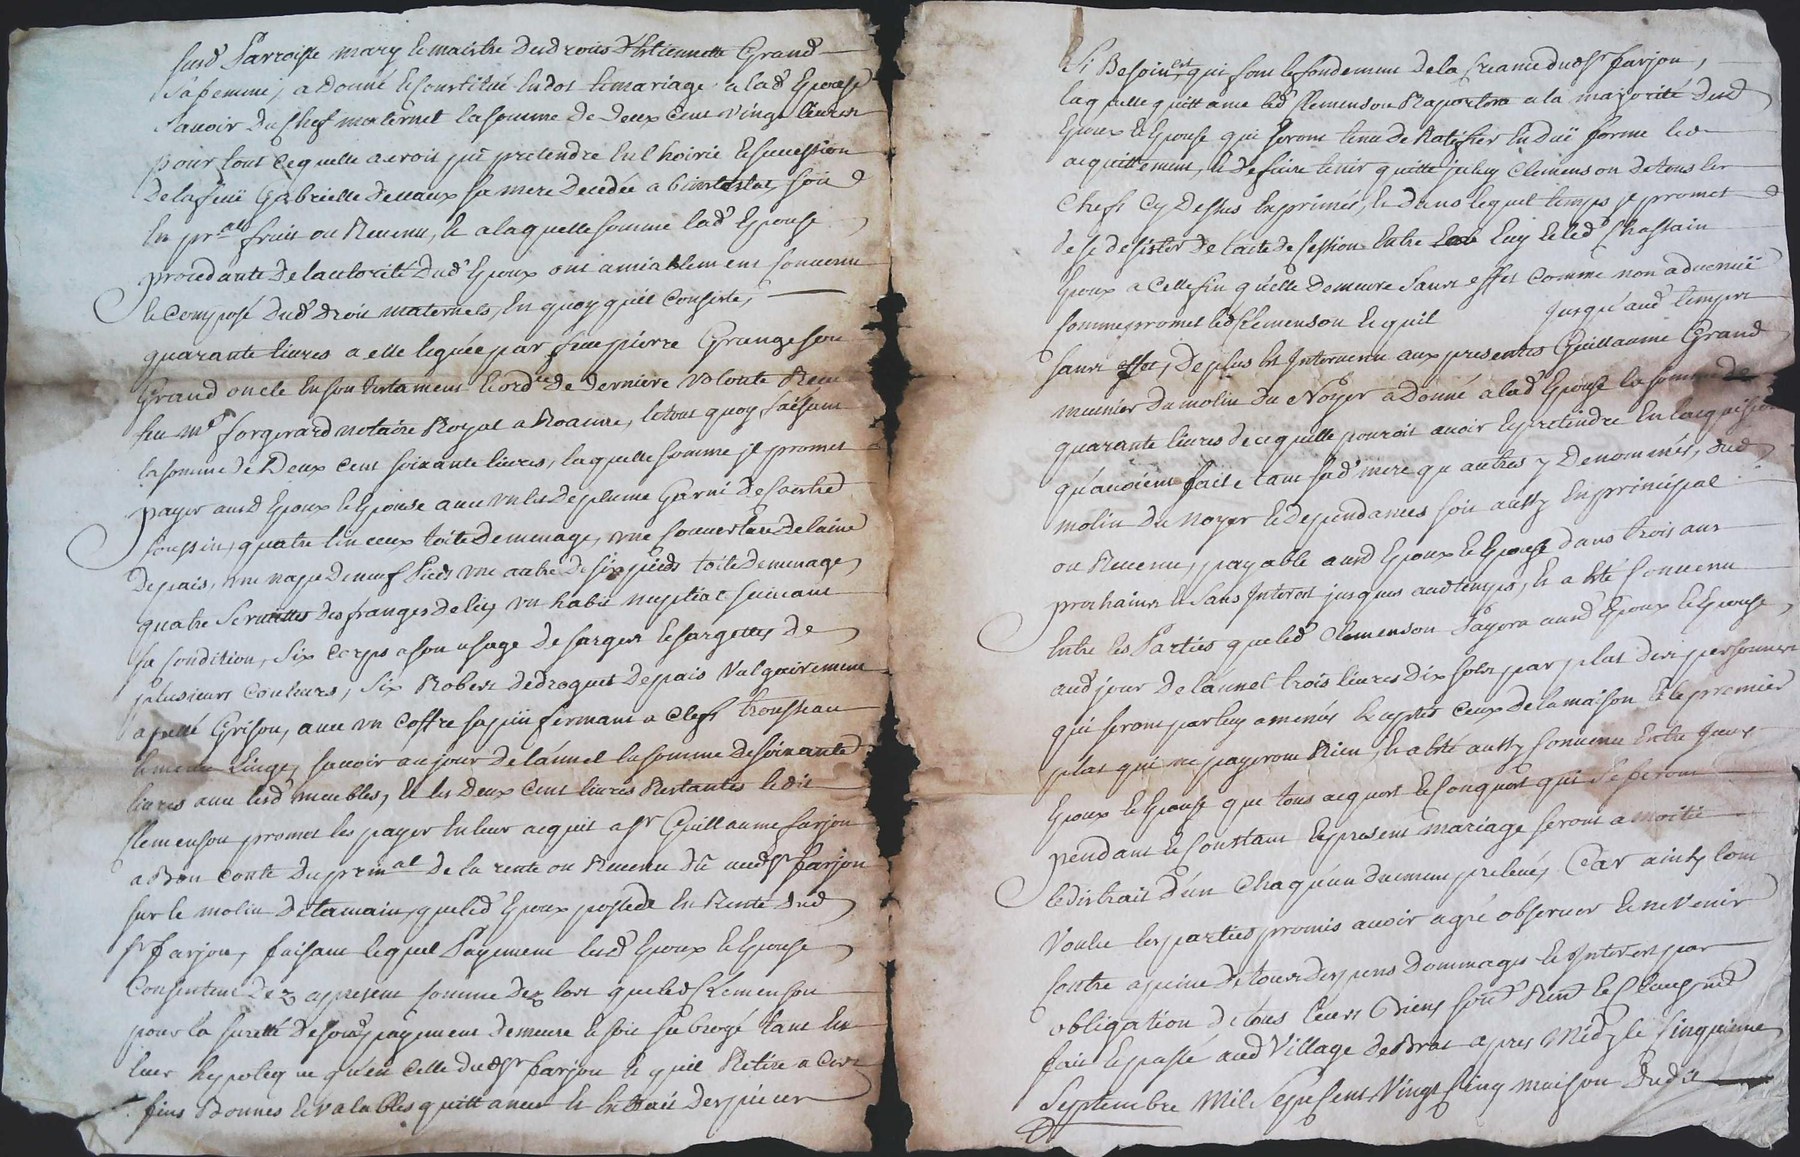 susd Parroisse mary lemaistre desdroits d'Estiennette Grand
sa femme, a donné & constitué en dot & mariage a lad Epouse
savoir du chef maternel la somme de deux cent vingt livres
pour tout ce quelle auroit put pretendre en l'hoirie & succession
de la feüe Gabrielle devaux sa mere decedée abintestat, soit
en pral fruit ou Revenu, & a laquelle somme lad Epouse
procedante de l'autorité dud Epoux ont amiablement convenu
& composé dud droit maternels, en quoy quil consiste,
quarante livres a elle leguée par feu pierre Grange son
Grand oncle en son testament & ordce de derniere volonté Receu
feu me forgerard notaire Royal a Roanne, le tout quoy faisant
la somme de Deux cent soixante livres, laquelle somme il promet
payer ausd Epoux & Epouse avec un lit de plume Garni de soistre
coussin, quatre linceux toile de menage, une couverture de laine
de pais, une nape de neuf Pieds une autre de six pieds toile de menage,
quatre serviettes des franges de lit, un habit nuptial suivant
sa condition, six corps a son usage de sarges & sargettes de
plusieurs couleurs, six Robes de droguet de pais vulgairement
apellé Grison, avec un coffre sapin fermant a clef, trousseau
& menu Linge, savoir au jour de l'annel la somme de soixante
livres avec lesd meubles, & les deux cent livres Restantes ledit
Clemenson promet les payer en leur acquit a sr Guillaume farjon
a Bon conte du prinal de la rente ou Revenu dû aud sr farjon
sur le molin de lamain, que led Epoux possede en Rente dud
sr farjon, faisant lequel Payement lesd Epoux & Epouse
Consentent dez apresent comme dez lors que led Clemenson
pour la sureté de sond payement demeure & soit subrogé tant en
leur hypoteque qu'en celle dud sr farjon & quil Retire a ces
fins Bonnes & valables quittances & extrait des pieces
si Besoin est, qui font le fondement de la creance dud sr farjon,
laquelle quittance led Clemenson Raportera a la majorité dud
Epoux & Epouse qui seront tenu de Ratifier en duë forme led
acquittement, & de faire tenir quitte jully Clemenson de tous les
Chefs cy dessus exprimés, & dans lequel temps il promet
de se desister de l'acte de cession entre luy & led Chastain
Epoux a celle fin qu'elle demeure sans effet comme non advenuë
comme promet led Clemenson & quil jusqu'aud temps
sans effet, De plus est Intervenu aux presentes Guillaume Grand
meunier du molin du Noyer a Donné a lad Epouse la somme de
quarante livres de ce quelle pouroit avoir & pretendre en lacquisition
qu'avoient faite tant sad mere qu autres y Denommés, dud
molin du noyer & dependances soit aussy en principal
ou Revenu, payable ausd Epoux & Epouse dans trois ans
prochains & sans Interest jusques aud temps, & a été convenu
Entre les Parties que led Clemenson Payera ausd Epoux & Epouse
aud jour de l'annel trois livres dix sols par plat des personnes
qui seront par luy amenés exceptés ceux de la maison & le premier
plat qui ne payeront Rien, & a été aussy convenu Entre Iceux
Epoux & Epouse que tous acquest & conquest qui se feront
pendant & constant le present mariage seront a moitié
& distrait d'un chaqu'un du meme prelevé, Car ainsy l'ont
voulu les parties promis avoir agré observer & ne venir
contre a peine de tous despens dommages & Interest par
obligation de tous leurs Biens sous Rend & clauses
fait & passé aud Village de Brat apres Midy le Cinquieme
Septembre Mil Sept Cent Vingt Cinq maison dudit